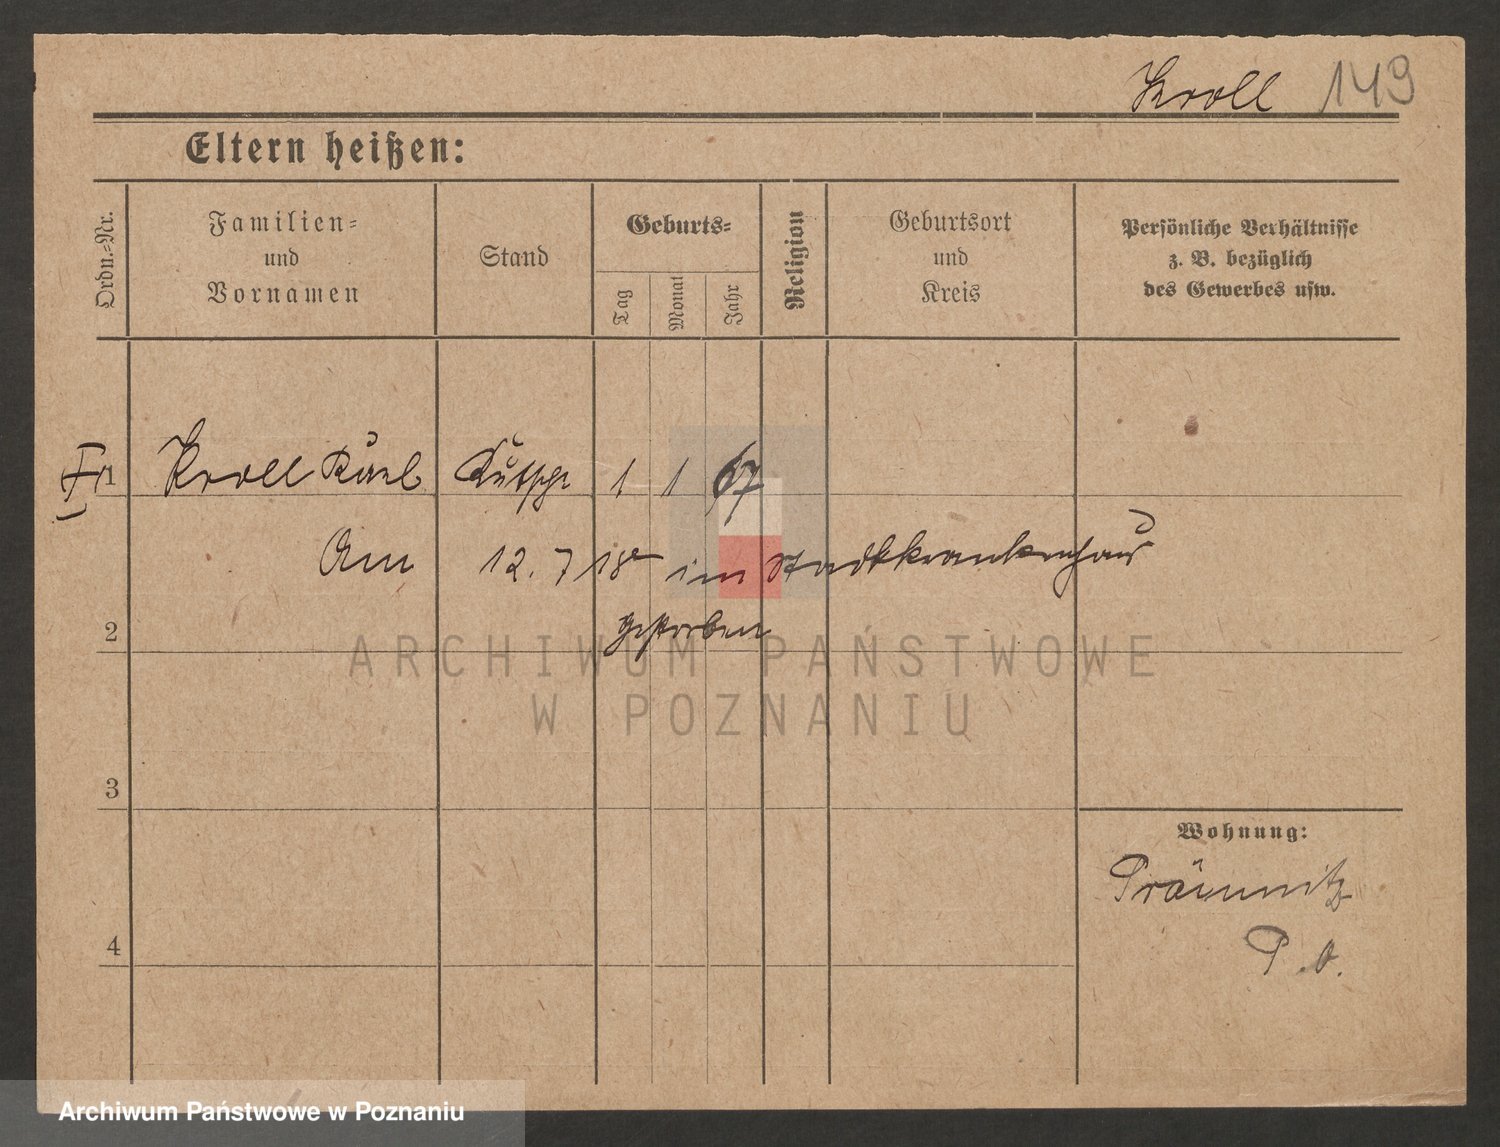 Kroll 149
Eltern heißen:
Ordn.-Nr.
Familien-
und
Vornamen
Stand
Geburts-
Tag
Monat
Jahr
Religion
Geburtsort
und
Kreis
Persönliche Verhältnisse
z. B. bezüglich
des Gewerbes usw.
1 Kroll Karl Kutscher 1 1 67
Am 12. 7 18 im Stadtkrankenhaus
gestorben
2
3
4
Wohnung:
ARCHIWUM PAŃSTWOWE
W POZNANIU
Archiwum Państwowe w Poznaniu